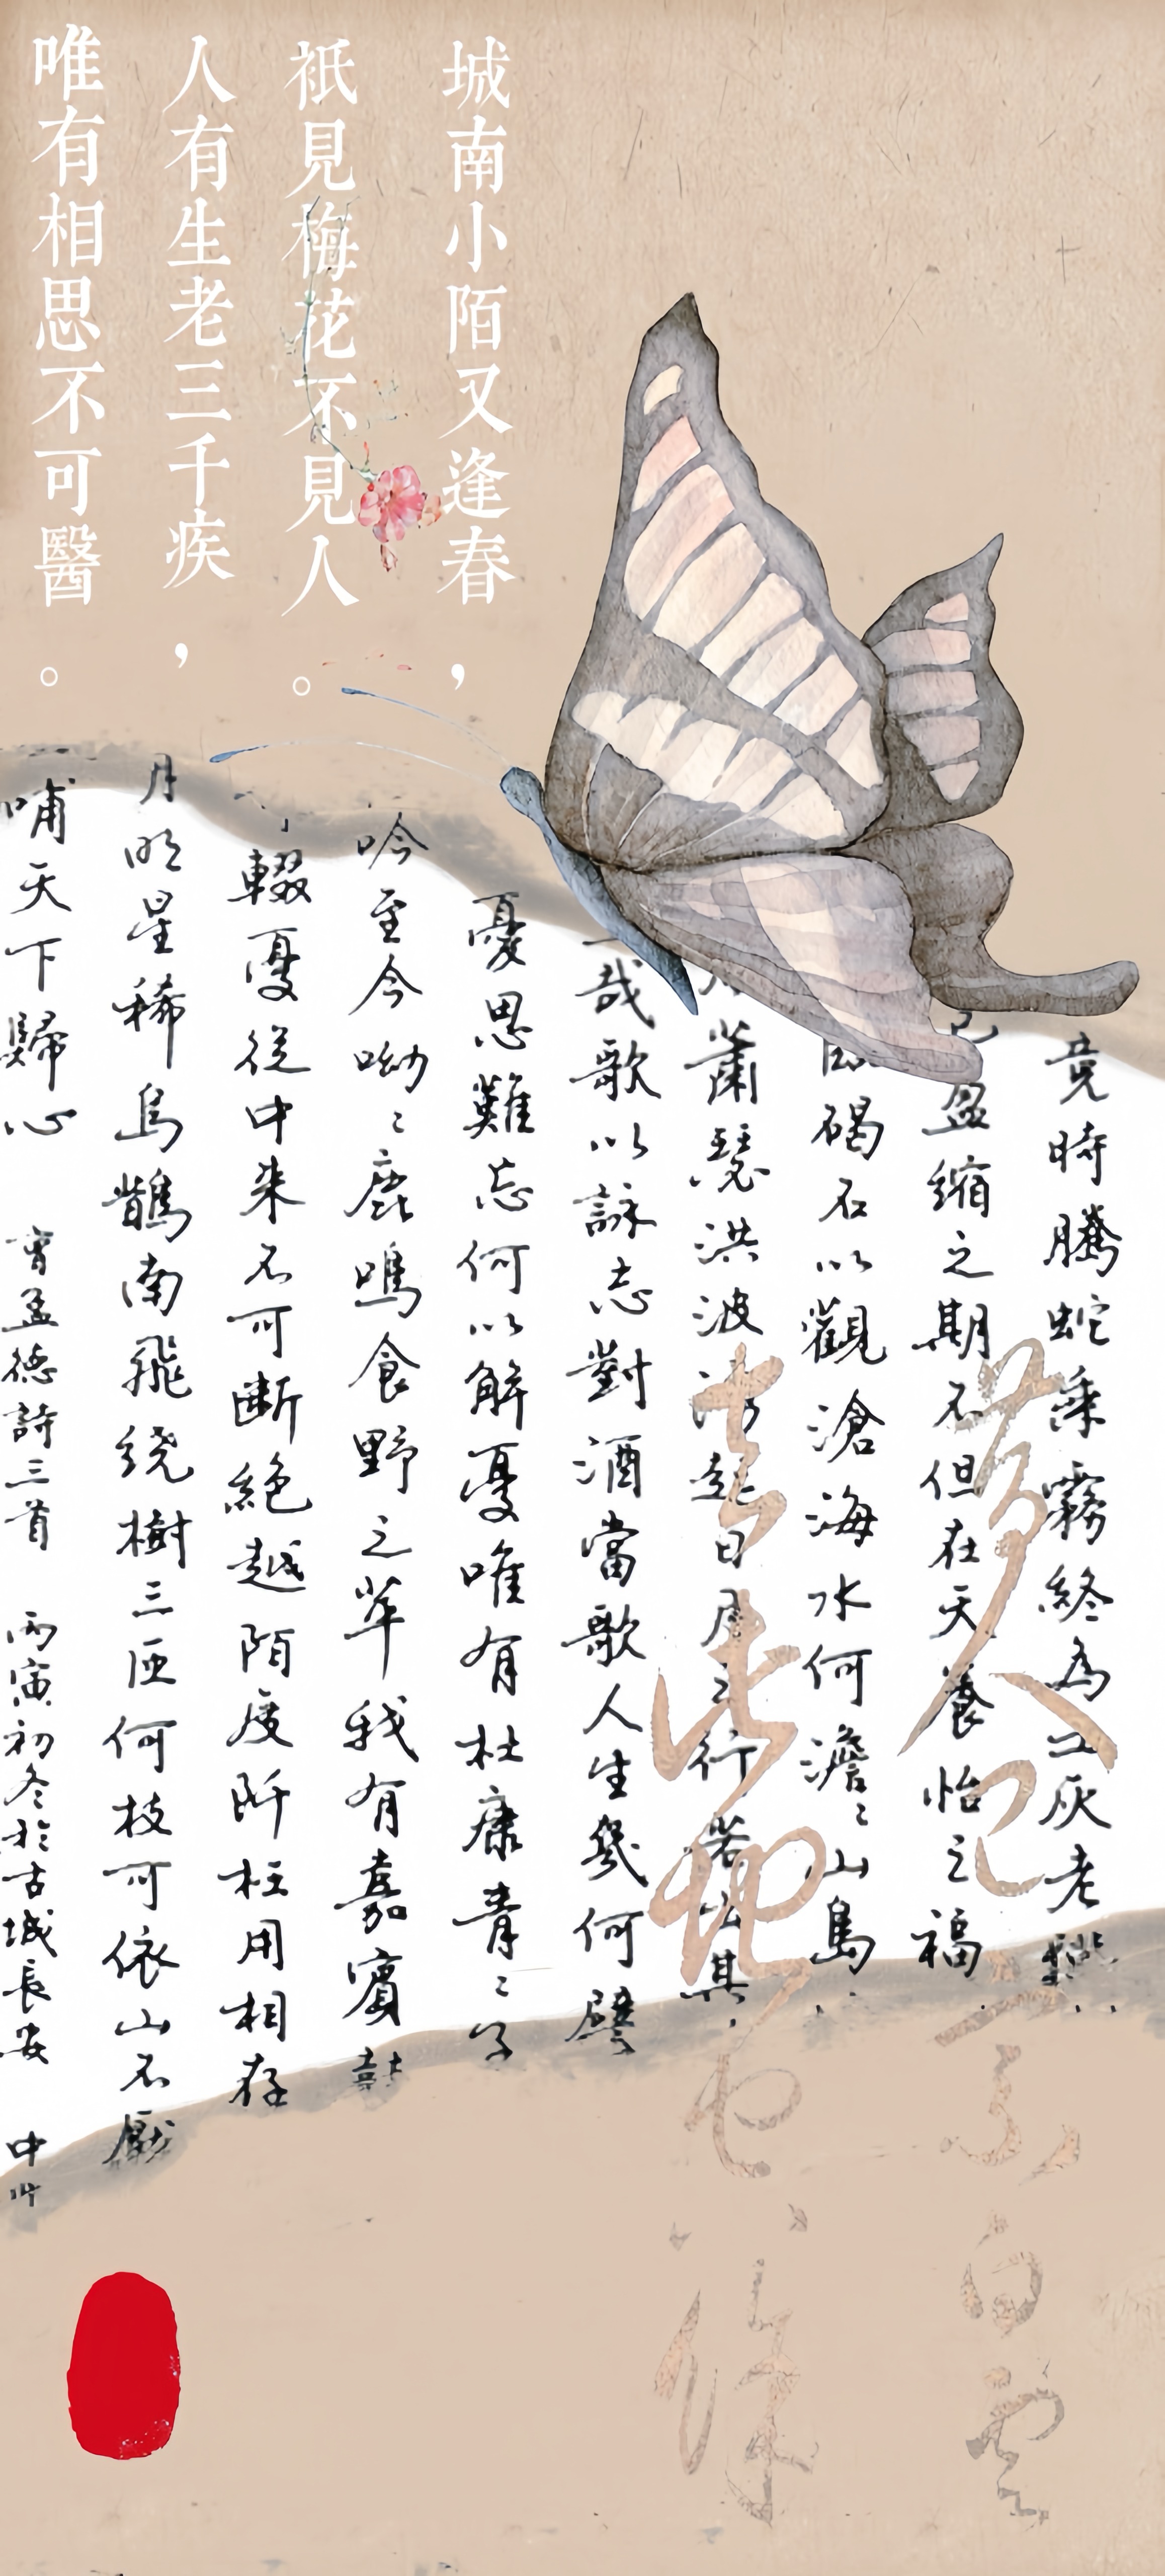 城南小陌又逢春，
祇見梅花不見人。
人有生老三千疾，
唯有相思不可醫。
竟時騰蛇乘霧終為土灰老驥
已盈縮之期不但在天養怡之福
臨碣石以觀滄海水何澹〻山島
蕭瑟洪波湧起日月之行若出其
哉歌以詠志對酒當歌人生幾何譬
憂思難忘何以解憂唯有杜康青〻子
吟至今呦〻鹿鳴食野之苹我有嘉賓鼓
輟憂從中來不可斷絕越陌度阡枉用相存
月明星稀烏鵲南飛繞樹三匝何枝可依山不厭
哺天下歸心 曹孟德詩三首 丙寅初冬於古城長安 中
昔人已乘白雲
去此地空餘